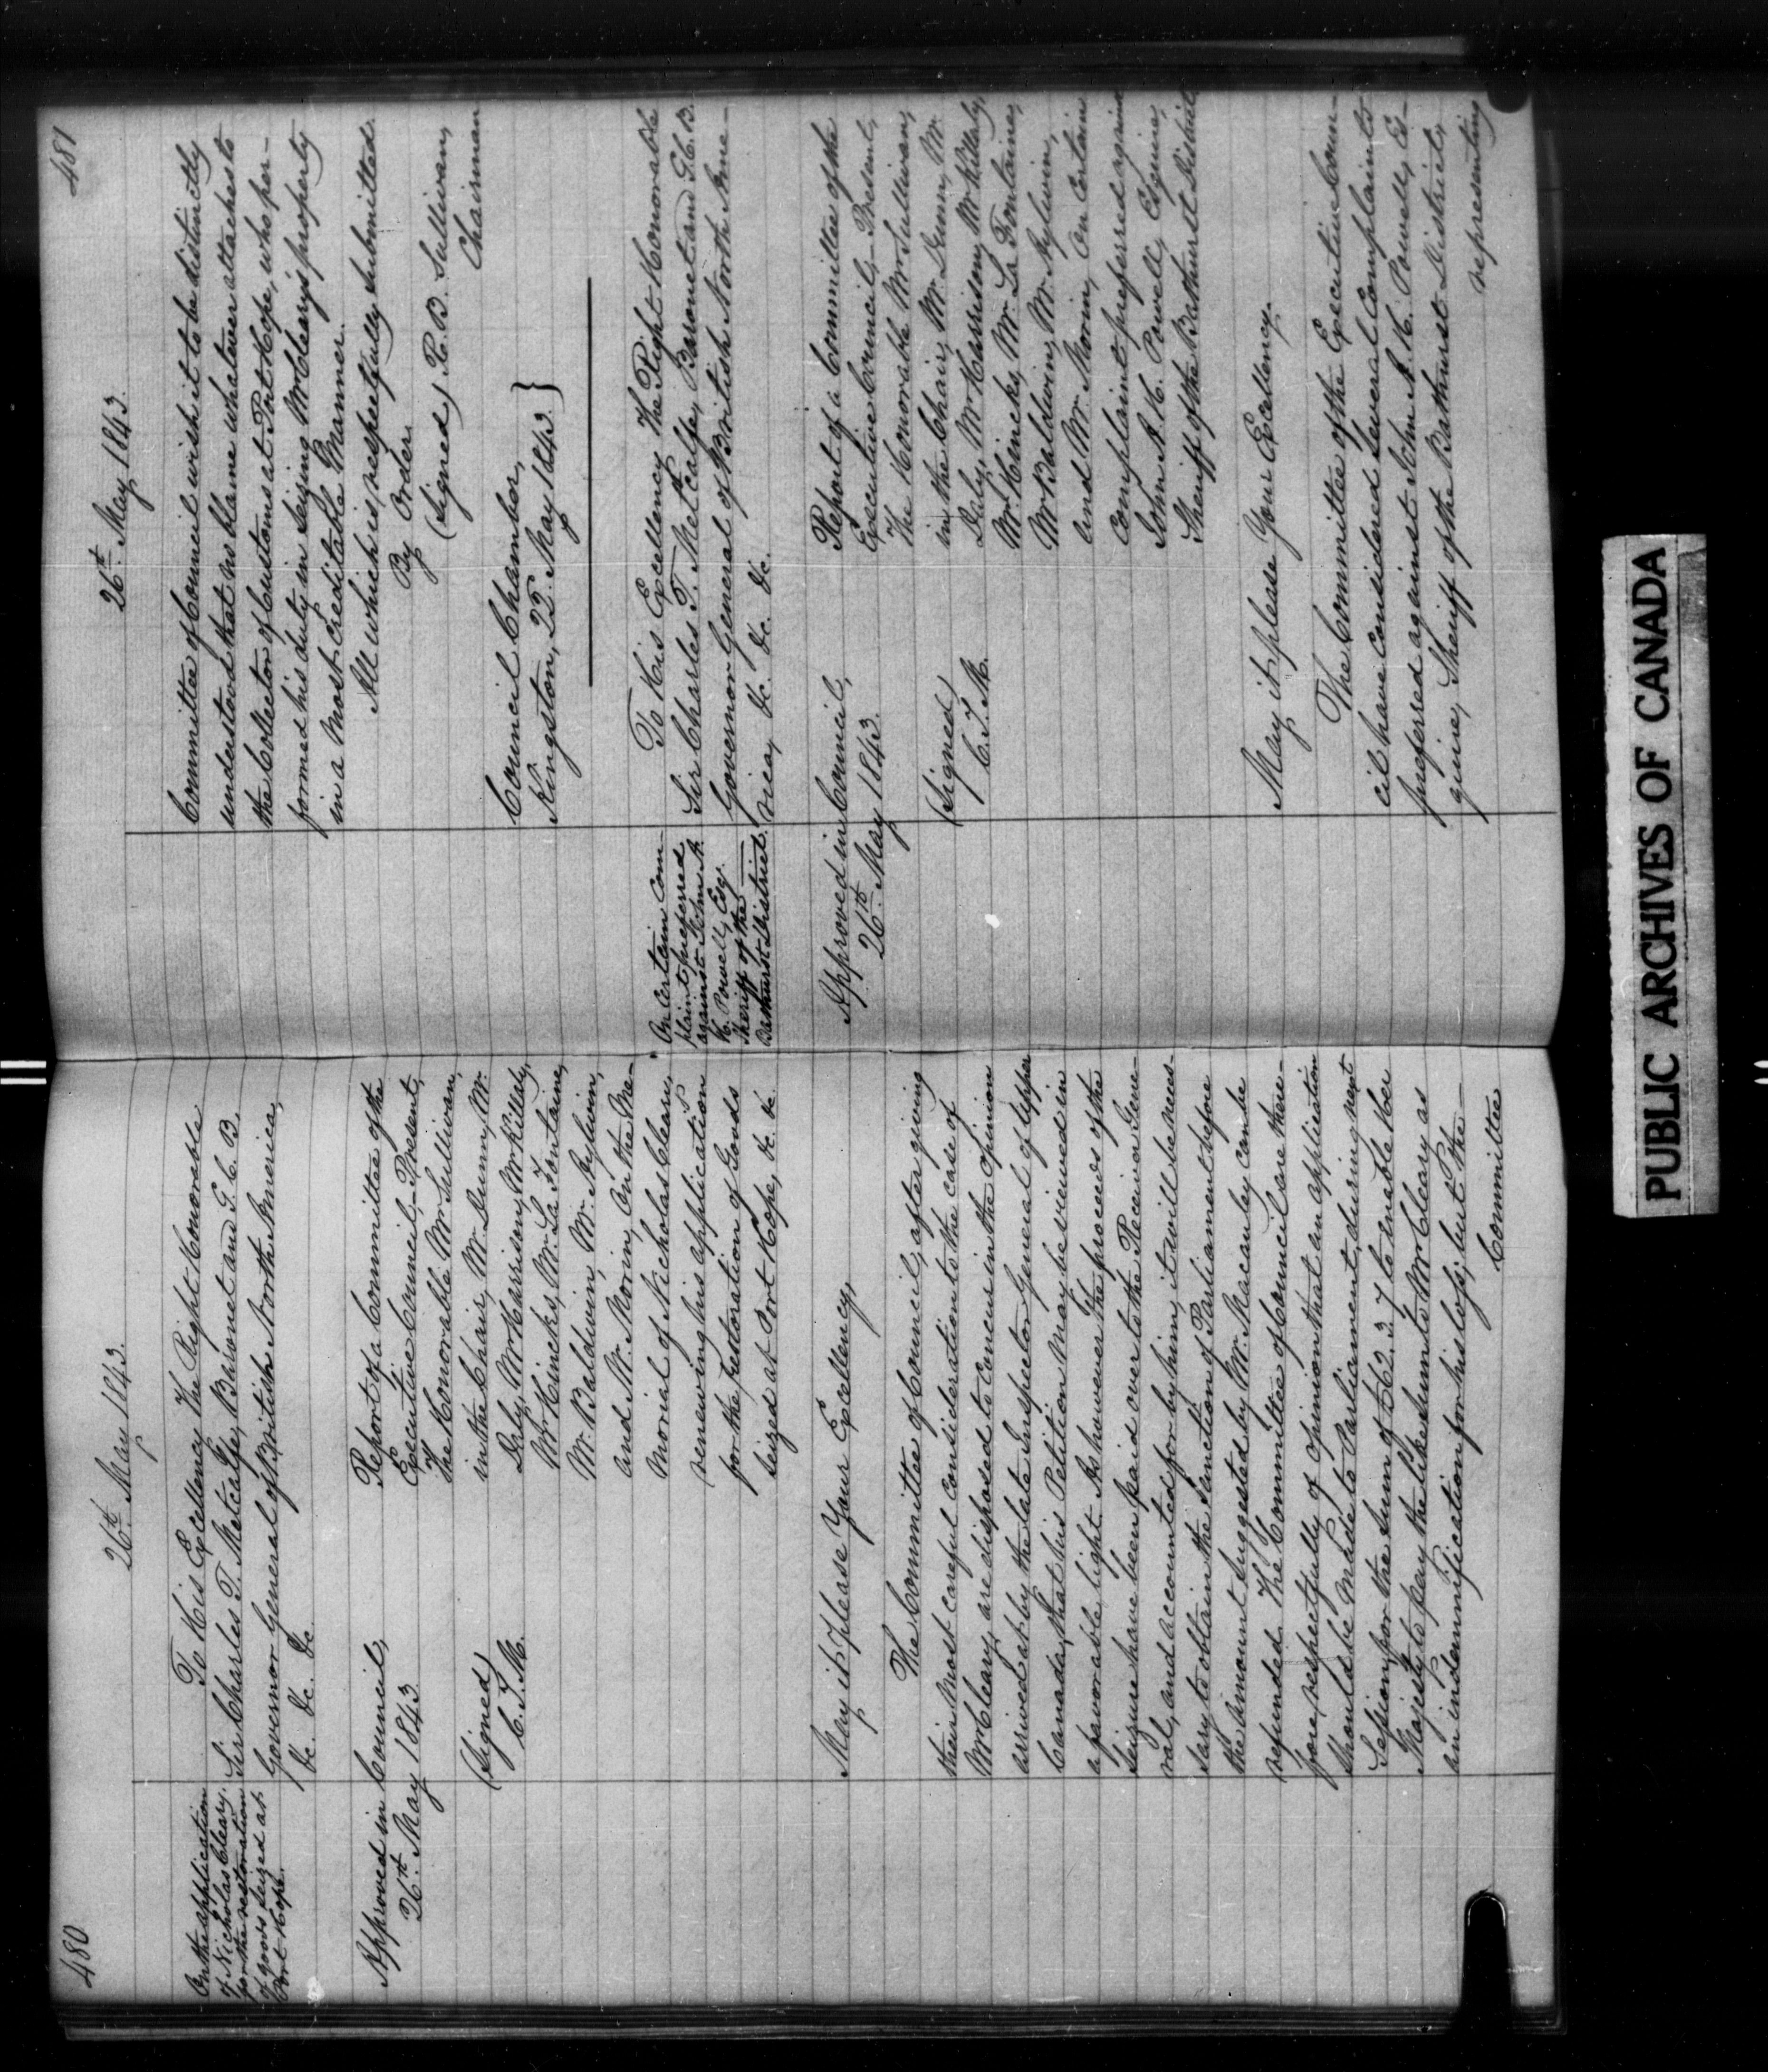 480
26th. May 1843.
On the application
of Nicholas Cleary,
for the restoration
of goods seized at
Port Hope.
To His Excellency The Right Honorable
Sir Charles T. Metcalfe, Baronet and G. C. B.
Governor General of British North America,
&c. &c. &c.
Approved in Council,
26th. May 1843
(Signed)
C. T. M.
Report of a Committee of the
Executive Council,—Present,
The Honorable Mr. Sullivan,
in the Chair, Mr. Dunn, Mr.
Daly, Mr Harrison, Mr Killaly,
Mr Hincks, Mr. La Fontaine,
Mr. Baldwin, Mr. Aylwin,
and Mr. Morin, On the Me-
morial of Nicholas Cleary,
renewing his application
for the restoration of Goods
seized at Port Hope, &c. &c.
May it please Your Excellency,
The Committee of Council, after giving
their most careful consideration to the case of
Mr Cleary, are disposed to concur in the opinion
arrived at by the late Inspector General of Upper
Canada, that his Petition may be viewed in
a favorable light. As however the proceeds of the
seizure have been paid over to the Receiver Gene-
ral, and accounted for by him, it will be neces-
sary to obtain the sanction of Parliament before
the amount suggested by Mr. Macaulay can be
refunded. The Committee of Council are there-
fore respectfully of opinion that an application
should be made to Parliament, during next
Session, for the sum of £62. 3. 7 to enable Her
Majesty to pay the like sum to Mr Cleary as
an indemnification for his loss; but the—
Committee
481
26th. May 1843.
Committee of Council wish it to be distinctly
understood that no blame whatever attaches to
the Collector of Customs at Port Hope, who per-
formed his duty in seizing Mr Cleary's property
in a most creditable manner.
All which is respectfully submitted.
By Order.
(Signed) R. B. Sullivan,
Chairman
Council Chamber,
Kingston, 22. May 1843. }
On certain com-
plaint preferred
against John A.
H. Powell, Esq.
Sheriff of the
Bathurst District.
To His Excellency The Right Honorable
Sir Charles T. Metcalfe, Baronet and G. C. B.
Governor General of British North Ame-
rica, &c. &c. &c.
Approved in Council,
26th. May 1843.
(Signed)
C. T. M.
Report of a Committee of the
Executive Council,—Present,
The Honorable Mr Sullivan,
in the Chair, Mr. Dunn, Mr.
Daly, Mr Harrison, Mr Killaly,
Mr. Hincks, Mr. La Fontaine,
Mr Baldwin, Mr. Aylwin,
and Mr. Morin, On certain
complaint preferred against
John A. H. Powell, Esquire,
Sheriff of the Bathurst District
May it please Your Excellency.
The Committee of the Executive Coun-
cil have considered several Complaints
preferred against John A. H. Powell, Es-
quire, Sheriff of the Bathurst District,
representing
PUBLIC ARCHIVES OF CANADA